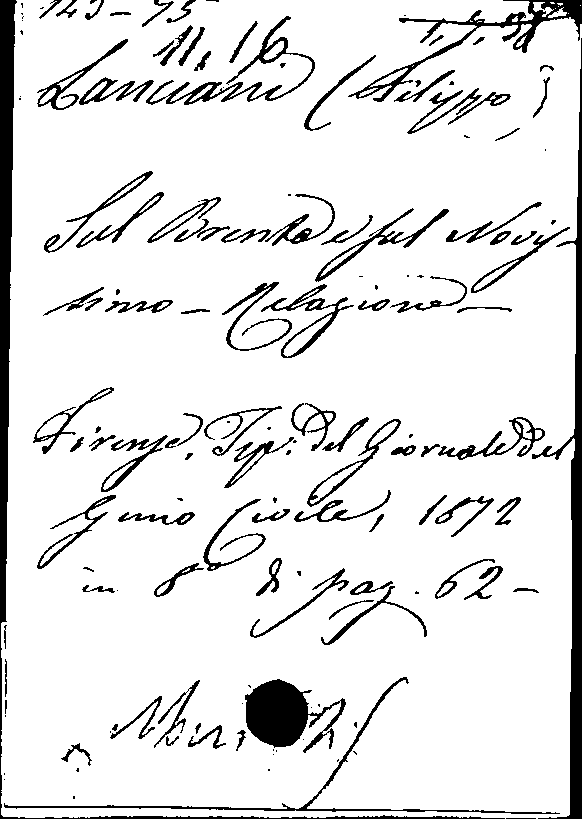 143-75
11.16
Lanciani (Filippo)
Sul Brenta e sul Novis-
simo - Relazione -
Firenze, Tip: del Giornale del
Genio Civile, 1872
in 8º di pag. 62 -